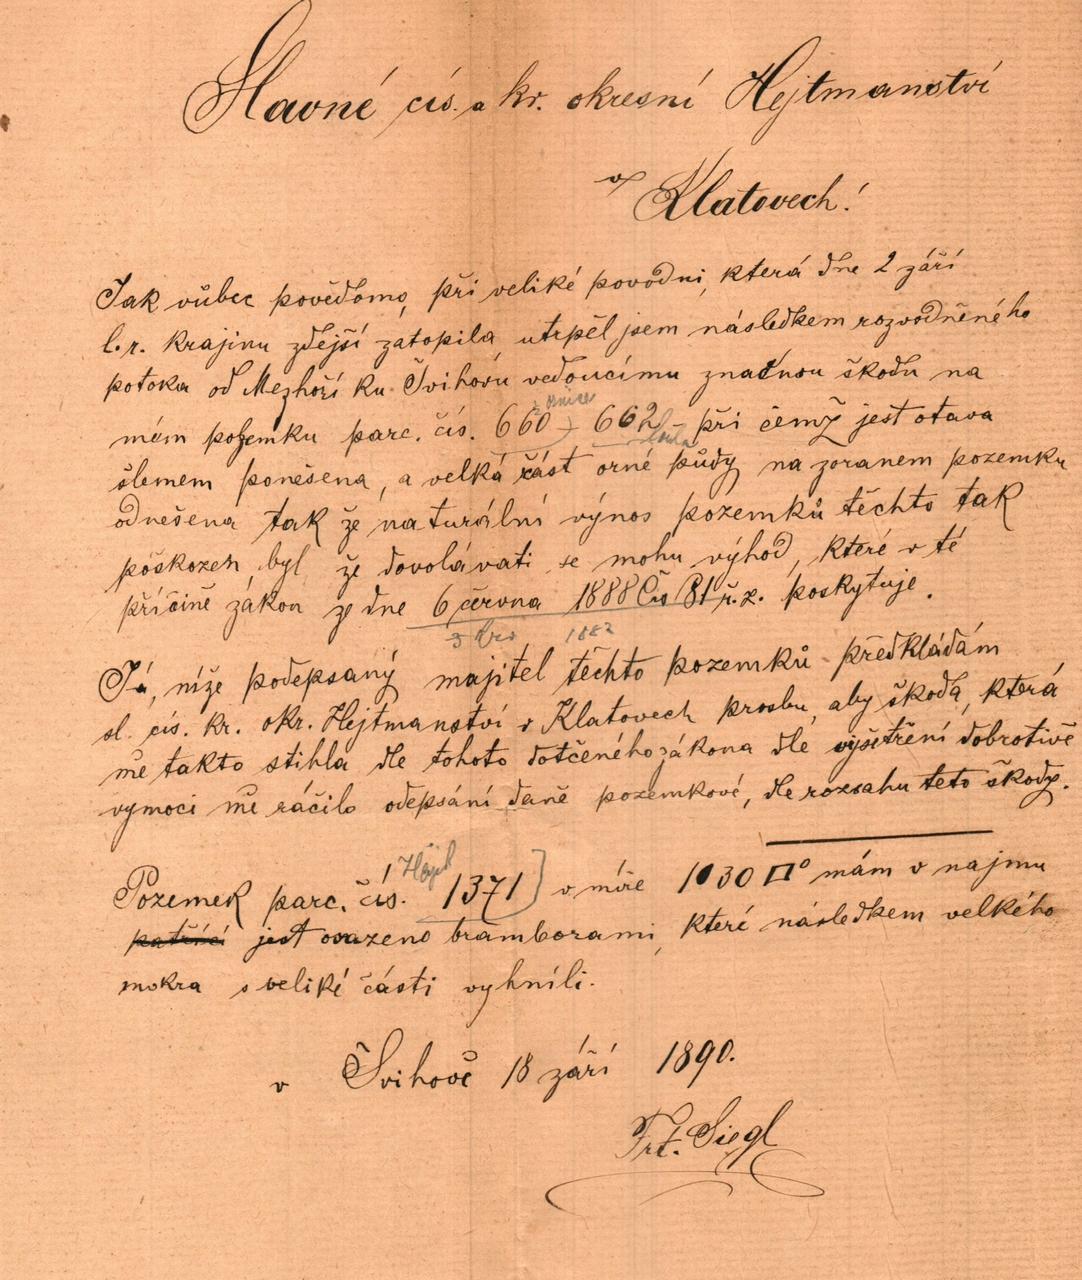 Slavné cís. a kr. okresní Hejtmanství
v
Klatovech!
Jak vůbec povědomo, při veliké povodni, která dne 2 září
l. r. krajinu zdejší zatopila utrpěl jsem následkem rozvodněného
potoka od Mezhoří ku Švihovu vedoucímu značnou škodu na
mém pozemku parc. čís. 660 – 662 při čemž jest otava
šlemem ponešena, a velká část orné půdy na zoranem pozemku
odnešena tak že naturální výnos pozemků těchto tak
poškozen byl že dovolávati se mohu výhod, které v té
příčině zákon ze dne 6 června 1888 Čís 81 ř. z. poskytuje.
1882
Já, níže podepsaný majitel těchto pozemků předkládám
sl. cís. kr. okr. Hejtmanství v Klatovech prosbu, aby škoda, která
mě takto stihla dle tohoto dotčeného zákona dle vyšetření dobrotivě
vymoci mě ráčilo odepsání daně pozemkové, dle rozsahu teto škody.
Pozemek parc. čís. 1371 v míře 1030 □° mám v najmu
patřící jest osazeno bramborami, které následkem velkého
mokra s veliké části vyhnili.
v Švihově 18 září 1890.
Frt. Siegl